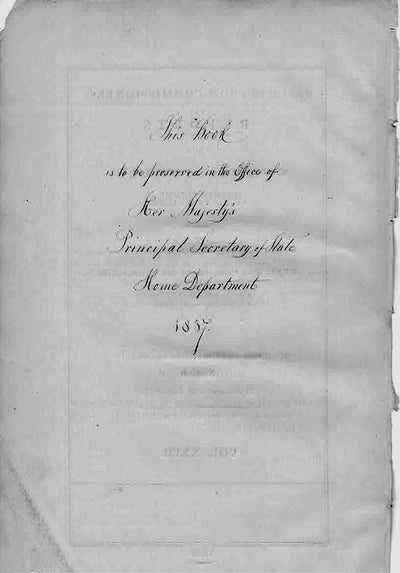 This Book
is to be preserved in the Office of
Her Majesty's
Principal Secretary of State
Home Department
1837.
VOL. XXVII.